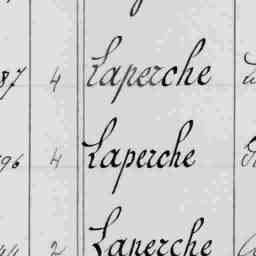 87 4 Laperche
96 4 Laperche
2 Laperche